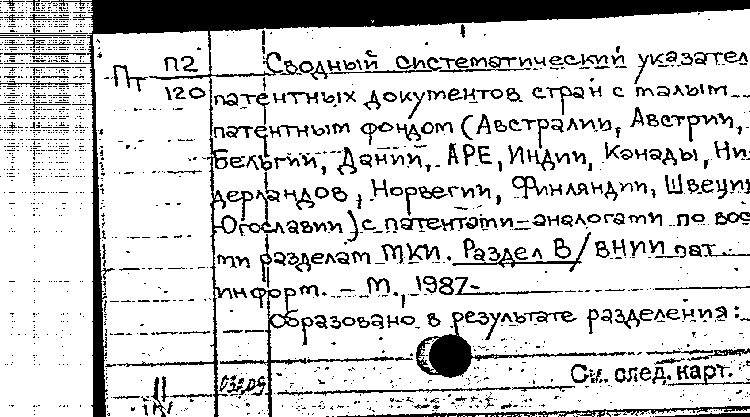 Пт П2/120
Сводный систематический указател
патентных документов стран с малым
патентным фондом (Австралии, Австрии,
Бельгии, Дании, АРЕ, Индии, Канады, Ни-
дерландов, Норвегии, Финляндии, Швеции
Югославии) с патентами-аналогами по вось
ми разделам МКИ. Раздел В / ВНИИ пат.
информ. – М., 1987-
Образовано в результате разделения:
См. след. карт.